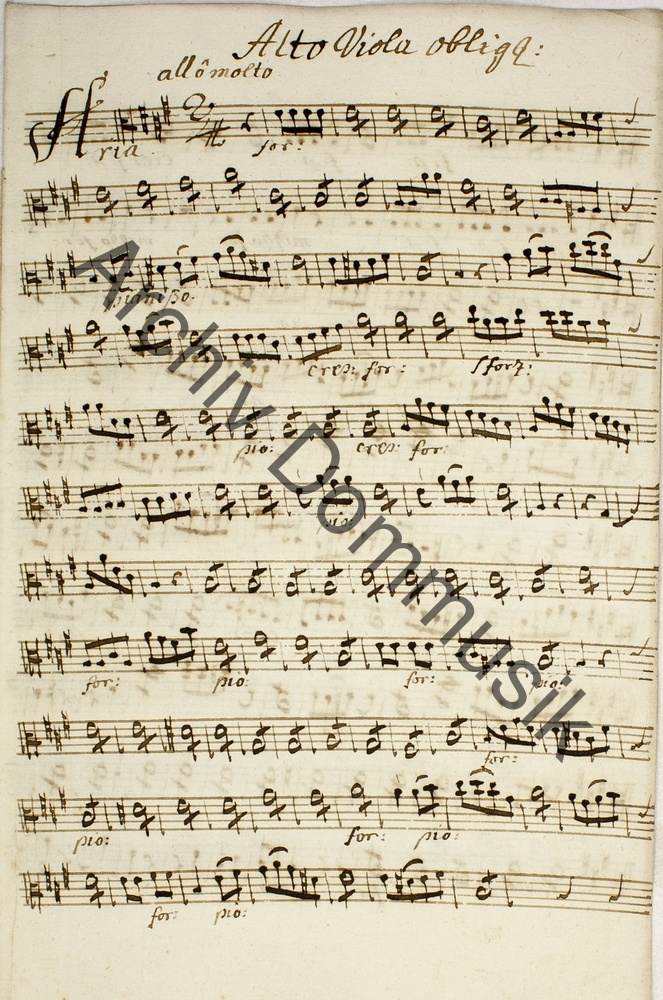 Alto Viola obligą:
all̂o molto
Aria
for:
pianißo.
cres: for: sforz:
pio: cres: for:
pio:
for: pio: for: pio:
for:
pio: for: pio:
for: pio:
Archiv Dommusik